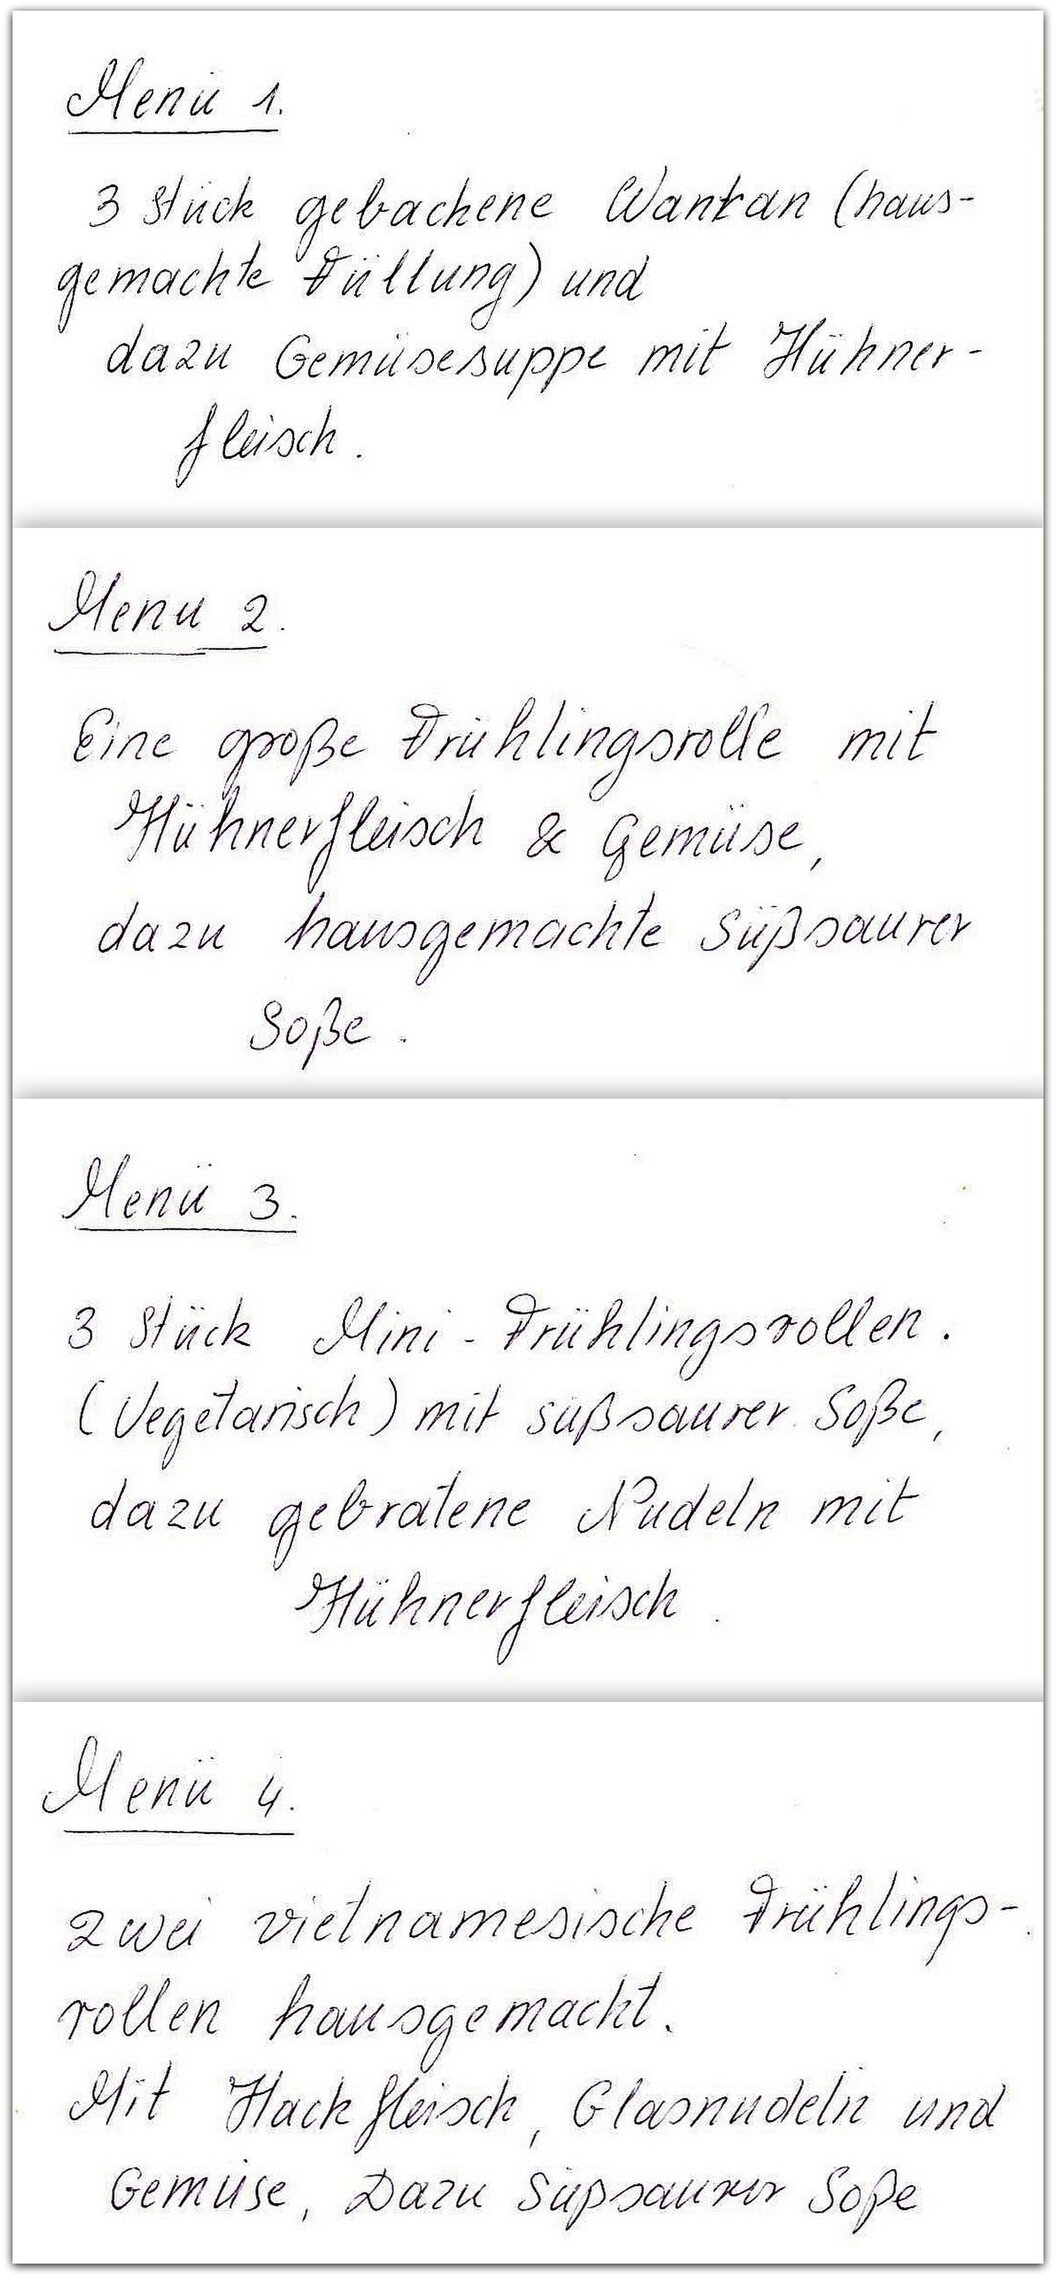 Menü 1.
3 Stück gebachene Wantan (haus-
gemachte Füllung) und
dazu Gemüsesuppe mit Hühner-
fleisch.
Menu 2.
Eine große Frühlingsrolle mit
Hühnerfleisch & Gemüse,
dazu hausgemachte Süßsaurer
Soße.
Menü 3.
3 Stück Mini-Frühlingsrollen.
(Vegetarisch) mit süßsaurer Soße,
dazu gebratene Nudeln mit
Hühnerfleisch.
Menü 4.
Zwei vietnamesische Frühlings-
rollen hausgemacht.
Mit Hackfleisch, Glasnudeln und
Gemüse, Dazu Süßsaurer Soße